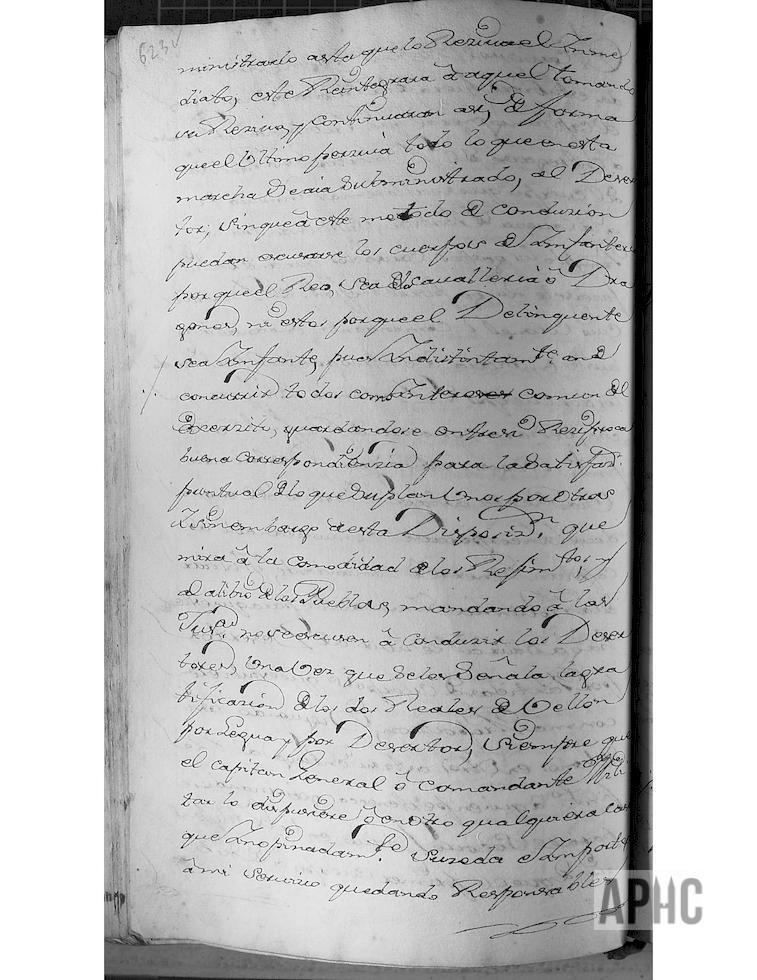 623v
ministrarlo asta que lo Reziva el Inme
diato, este Reintegrará â aquel tomando
su Rezivo, y continuaran asi, de forma
que el Ultimo perziva todo lo que en esta
marcha se aia Subministrado, al Deser
tor, sin que â este metodo de conduzion
puedan escusarse los cuerpos de Infanteria
por que el Reo, sea de cavalleria ô Dra
gones, ni estos por que el Delinquente
sea Infante, pues Indistintamte. an de
concurrir todos como Interes comun del
Exerzito, guardandose entre si Reziproca
buena correspondenzia para la Satisfazn.
puntual de lo que Suplan Unos por otros
Y sin embargo de esta Disposizn. que
mira â la comodidad de los Regimtos. y
al alibio de los Pueblos, mandando â las
Juss. no se escusen â conduzir los Deser
tores, Una Vez que se les Señala la gra
tificazion de los dos Reales de Vellon
por Legua y por Desertor, Siempre que
el capitan General ô comandante Mili
tar lo dispusiere ô en otro qualquiera caso
que Inopinadamte. suzeda e Importe
â mi servicio quedando Responsables
APHC